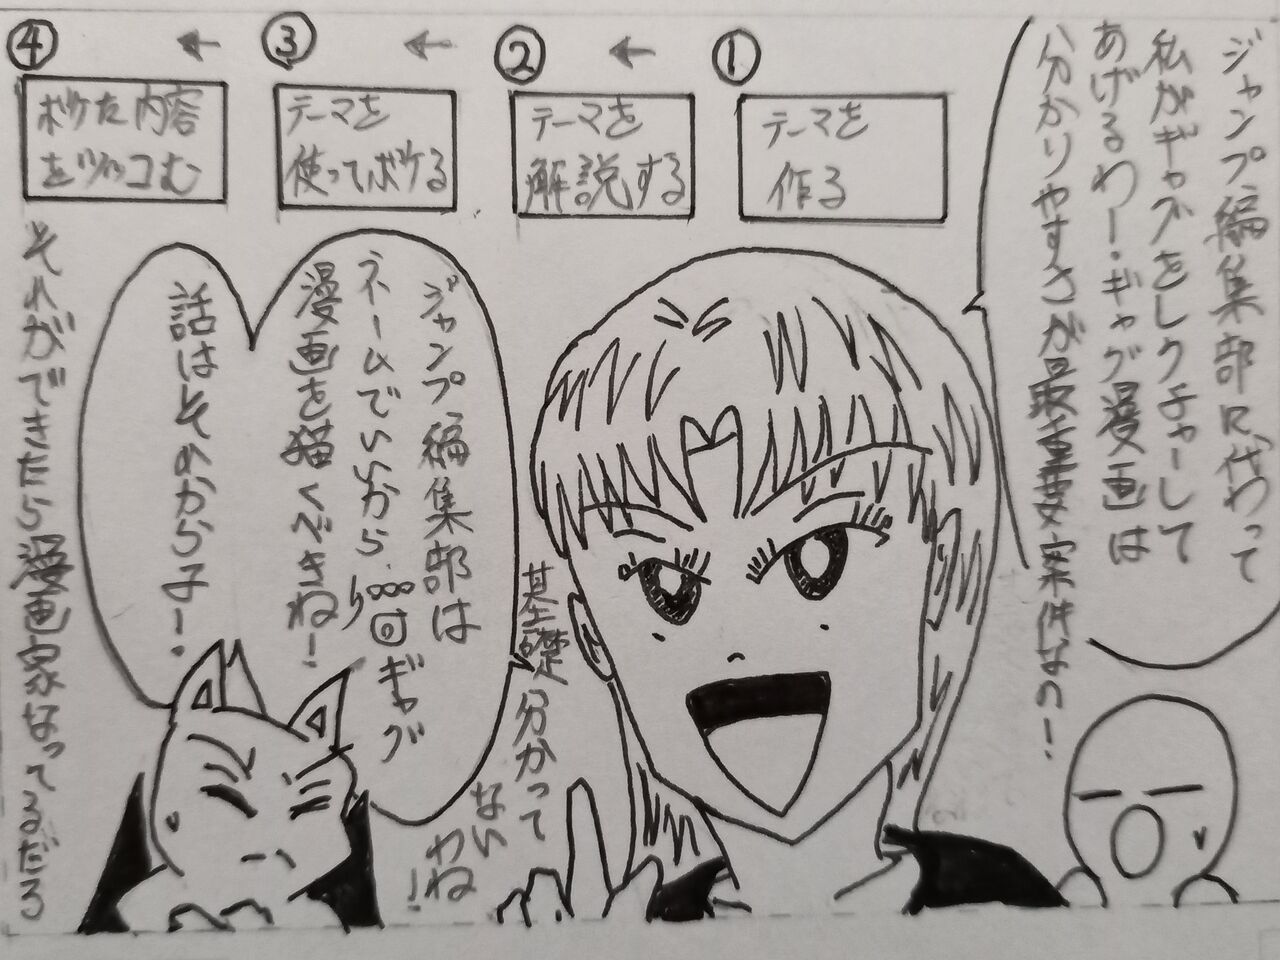 ジャンプ編集部に代わって
私がギャグをレクチャーして
あげるわー・ギャグ漫画は
分かりやすさが最重要案件なの!
①
テーマを
作る
←
②
テーマを
解説する
←
③
テーマを
使ってボケる
←
④
ボケた内容
をツッコむ
基礎分かって
ないわね!
ジャンプ編集部は
ネームでいいから、
回ギャグ
漫画を描くべきね!
話はそれからよ!
それができたら漫画家なってるだろ